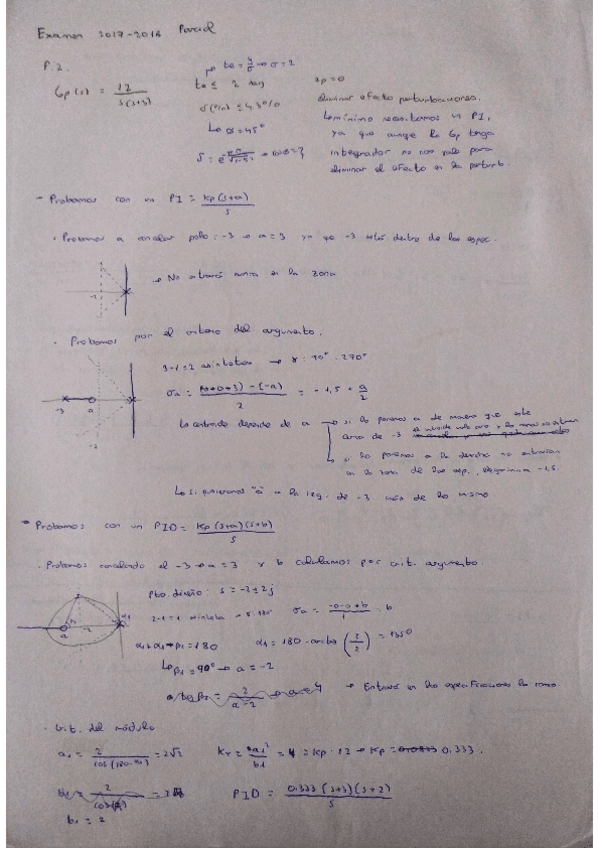 Examen 2017-2018 Parcial
P.2.
Gp(s) = 12 / s(s+3)
te = 4/σ → σ = 2
te ≤ 2 seg
δ(Mp) ≤ 4,3%
↳ θ = 45°
ep = 0
eliminar efecto perturbaciones.
↳ mínimo necesitamos un PI,
ya que aunque la Gp tenga
integrador no nos vale para
eliminar el efecto de la perturb.
- Probamos con un PI = Kp(s+a) / s
· Probamos a cancelar polo: -3 → a = 3 ya que -3 está dentro de las espec.
→ No entrará nunca en la zona
-2
· Probamos por el criterio del argumento.
3-1 = 2 asíntotas → γ: 90°, 270°
σa = (0+0+3) - (-a) / 2 = -1,5 + a/2
-3 a
-2
La centroide depende de a → si lo ponemos a de manera que esté
cerca de -3
↳ si lo ponemos a la derecha no entrarían
en la zona de las esp.
-1,5.
↳ Si ponemos "a" a la izq. de -3 más de lo mismo
- Probamos con un PID = Kp(s+a)(s+b) / s
· Probamos cancelando el -3 → a = 3 y b calculamos por crit. argumento.
Pto. diseño: s = -2 ± 2j
2-1 = 1 asíntota → 180°
σa = -0-0+b / 1 = b
α1 + α1 - β1 = 180
α1 = 180 - arctg (2/2) = 135°
↳ β1 = 90° → a = -2
→ Entrará en las especificaciones la rama.
· Crit. del módulo
a1 = 2 / cos(180-90) = 2√2
Kr = a1² / b1 = 4 = Kp · 12 → Kp = 0.333.
b1 = 2
PID = 0.333 (s+3)(s+2) / s